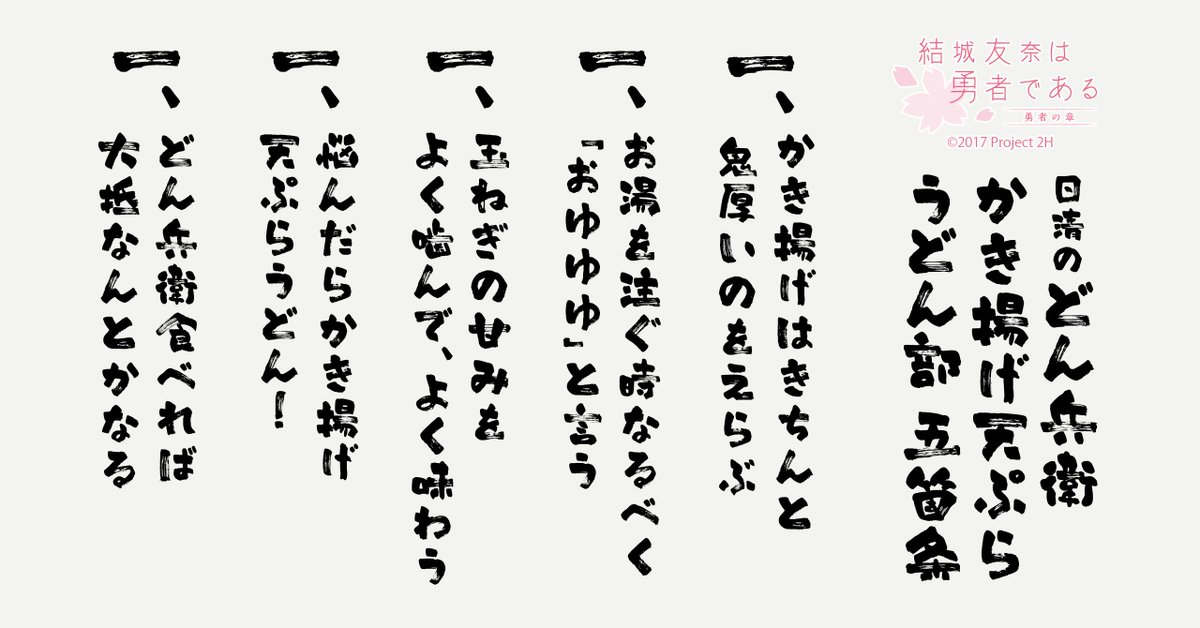 結城友奈は
勇者である
勇者の章
©2017 Project 2H
日清のどん兵衛
かき揚げ天ぷら
うどん部 五箇条
一、かき揚げはきちんと
鬼厚いのをえらぶ
一、お湯を注ぐ時なるべく
「おゆゆゆ」と言う
一、玉ねぎの甘みを
よく噛んで、よく味わう
一、悩んだらかき揚げ
天ぷらうどん！
一、どん兵衛食べれば
大抵なんとかなる